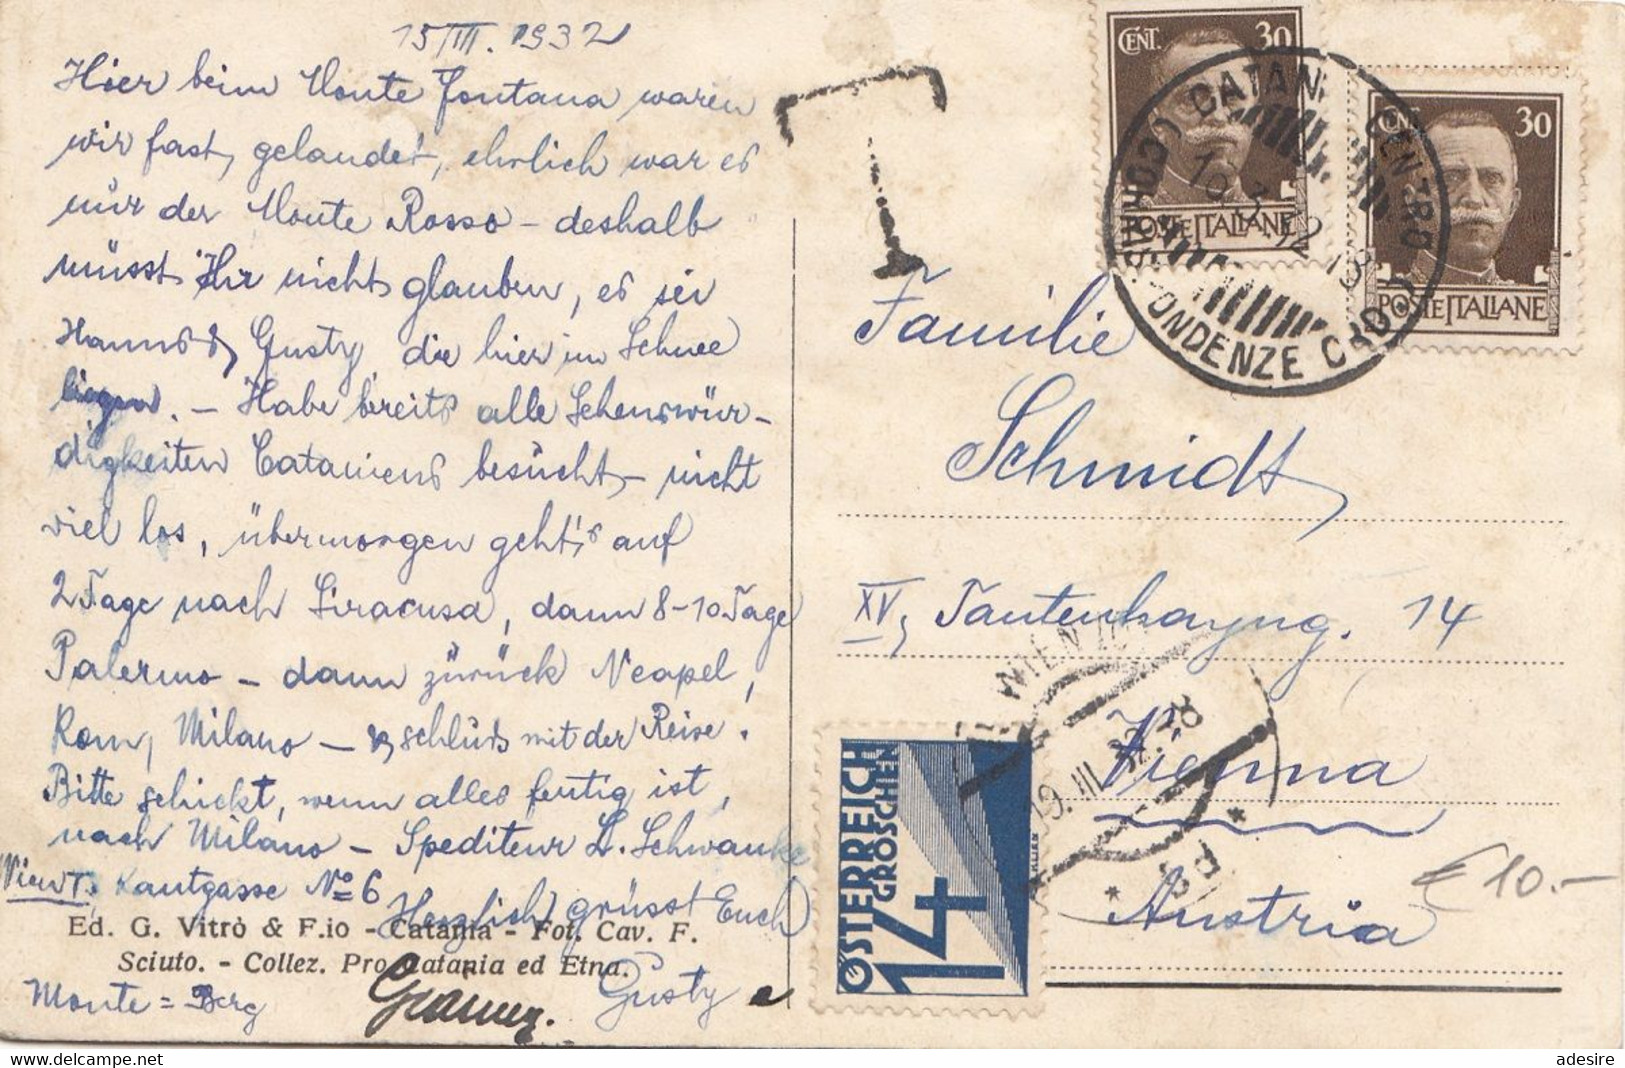 15/III. 1932
Hier beim Monte Fontana waren
wir fast gelandet, ehrlich war es
nur der Monte Rosso - deshalb
müsst Ihr nicht glauben, es sei
Hannes & Gusty die hier im Schnee
liegen. - Habe bereits alle Sehenswür-
digkeiten Cataniens besucht - nicht
viel los, übermorgen geht's auf
2 Tage nach Siracusa, dann 8-10 Tage
Palermo - dann zurück Neapel,
Rom, Milano - & schluss mit der Reise.
Bitte schickt, wenn alles fertig ist,
nach Milano - Spediteur L. Schwanke
Wien I. Kantgasse No 6
Herzlich grüsst Euch
Ed. G. Vitrò & F.io - Catania - Fot. Cav. F.
Sciuto. - Collez. Pro Catania ed Etna.
Monte = Berg
Gusty
T
CENT. 30
POSTE ITALIANE
CENT. 30
POSTE ITALIANE
CATANIA CENTRO
Familie
Schmidt
XV, Tautenhayng. 14
Vienna
Austria
WIEN
19. III. 32. 18
ÖSTERREICH
14 GROSCHEN
€ 10.-
View this Item at www.delcampe.net
adesire